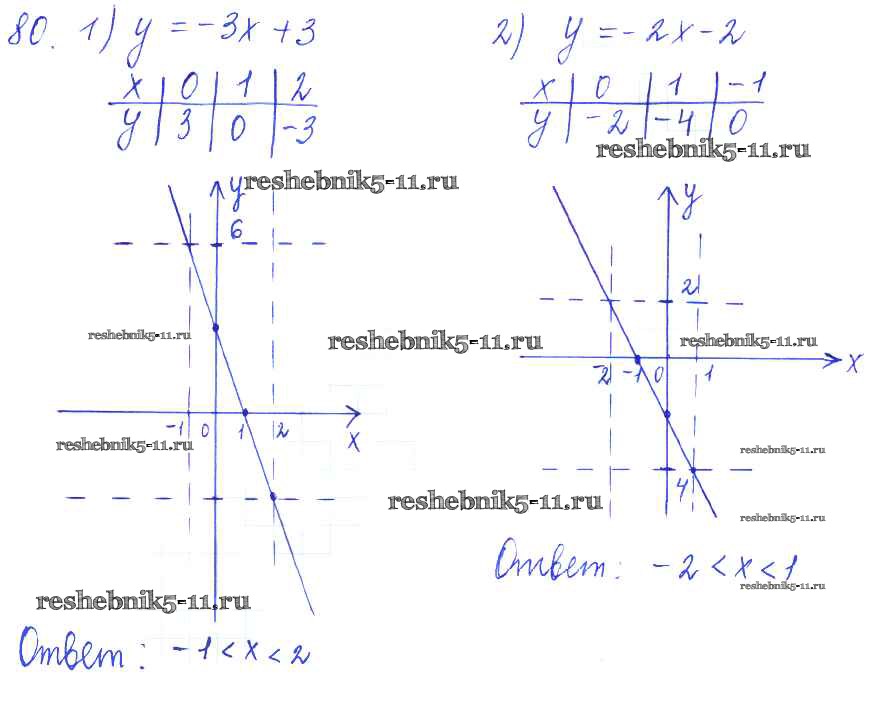 80. 1) y = -3x + 3
x | 0 | 1 | 2
y | 3 | 0 | -3
reshebnik5-11.ru
y
6
reshebnik5-11.ru
reshebnik5-11.ru
-1 0 1 2 x
reshebnik5-11.ru
reshebnik5-11.ru
reshebnik5-11.ru
Ответ: -1 < x < 2
2) y = -2x - 2
x | 0 | 1 | -1
y | -2 | -4 | 0
reshebnik5-11.ru
y
2
reshebnik5-11.ru
-2 -1 0 1 x
reshebnik5-11.ru
4
reshebnik5-11.ru
Ответ: -2 < x < 1
reshebnik5-11.ru